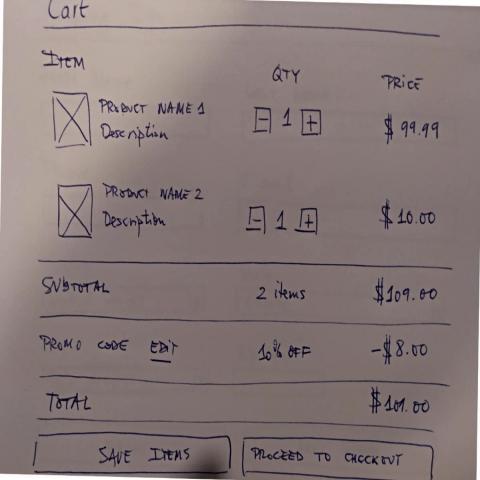 Cart
ITEM QTY PRICE
PRODUCT NAME 1
Description - 1 + $99.99
PRODUCT NAME 2
Description - 1 + $10.00
SUBTOTAL 2 items $109.00
PROMO CODE EDIT 10% OFF -$8.00
TOTAL $101.00
SAVE ITEMS PROCEED TO CHECKOUT